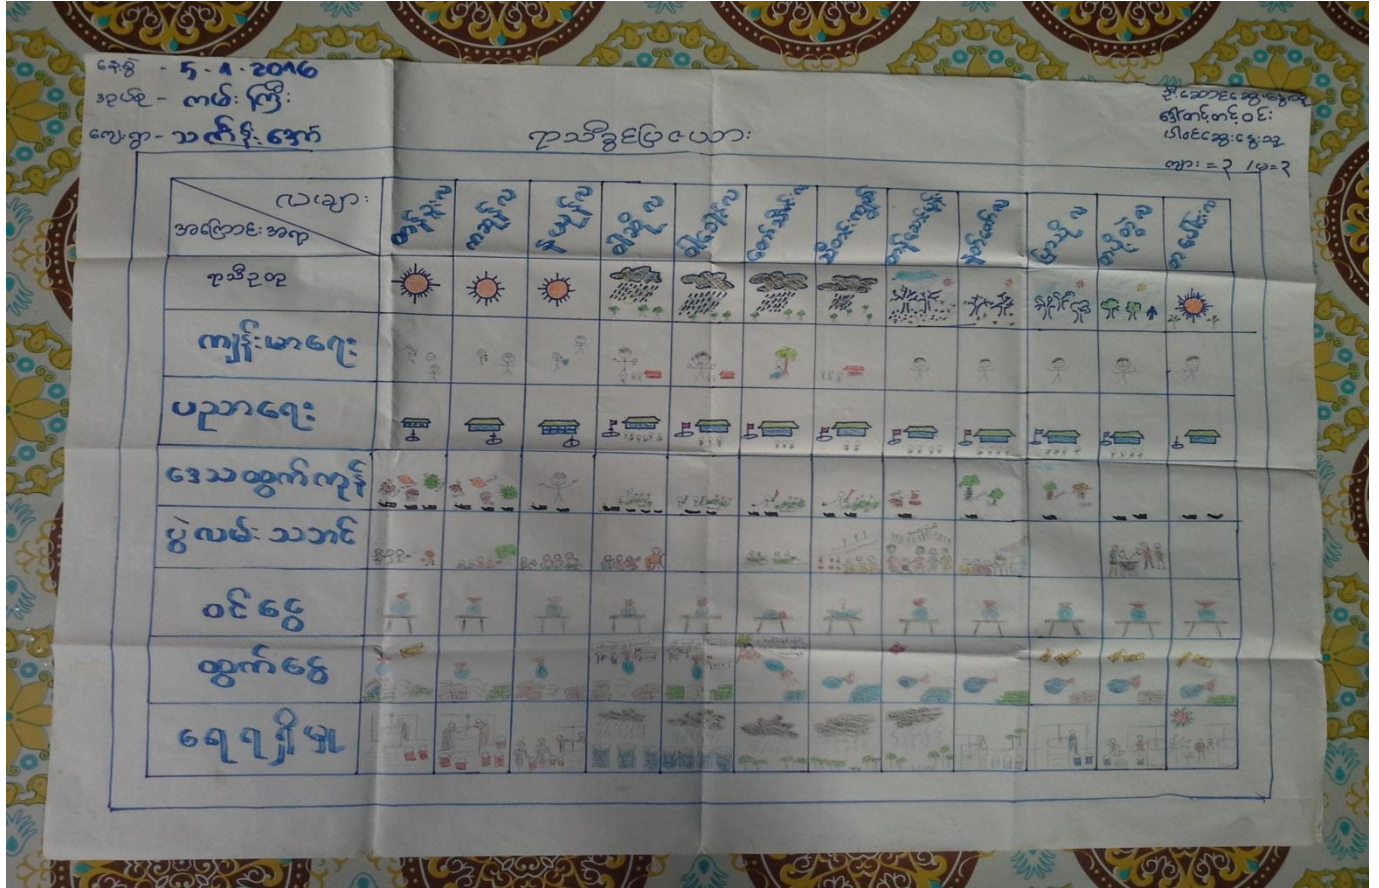 နေ့စွဲ - 5.1.2016
ကမ်းကြီး
ကျေးရွာ - သင်္ကန်းအော်
ရာသီခွင်ပြဇယား
ကျား = ၃ / မ = ၃
လများ
အကြောင်းအရာ
တန်ခူးလ
ကဆုန်လ
နယုန်လ
ဝါဆိုလ
ဝါခေါင်လ
တော်သလင်းလ
သီတင်းကျွတ်လ
တန်ဆောင်မုန်းလ
နတ်တော်လ
ပြာသိုလ
တပို့တွဲလ
တပေါင်းလ
ရာသီဥတု
ကျန်းမာရေး
ပညာရေး
ဒေသထွက်ကုန်
ပွဲလမ်းသဘင်
ဝင်ငွေ
ထွက်ငွေ
ရေရရှိမှု